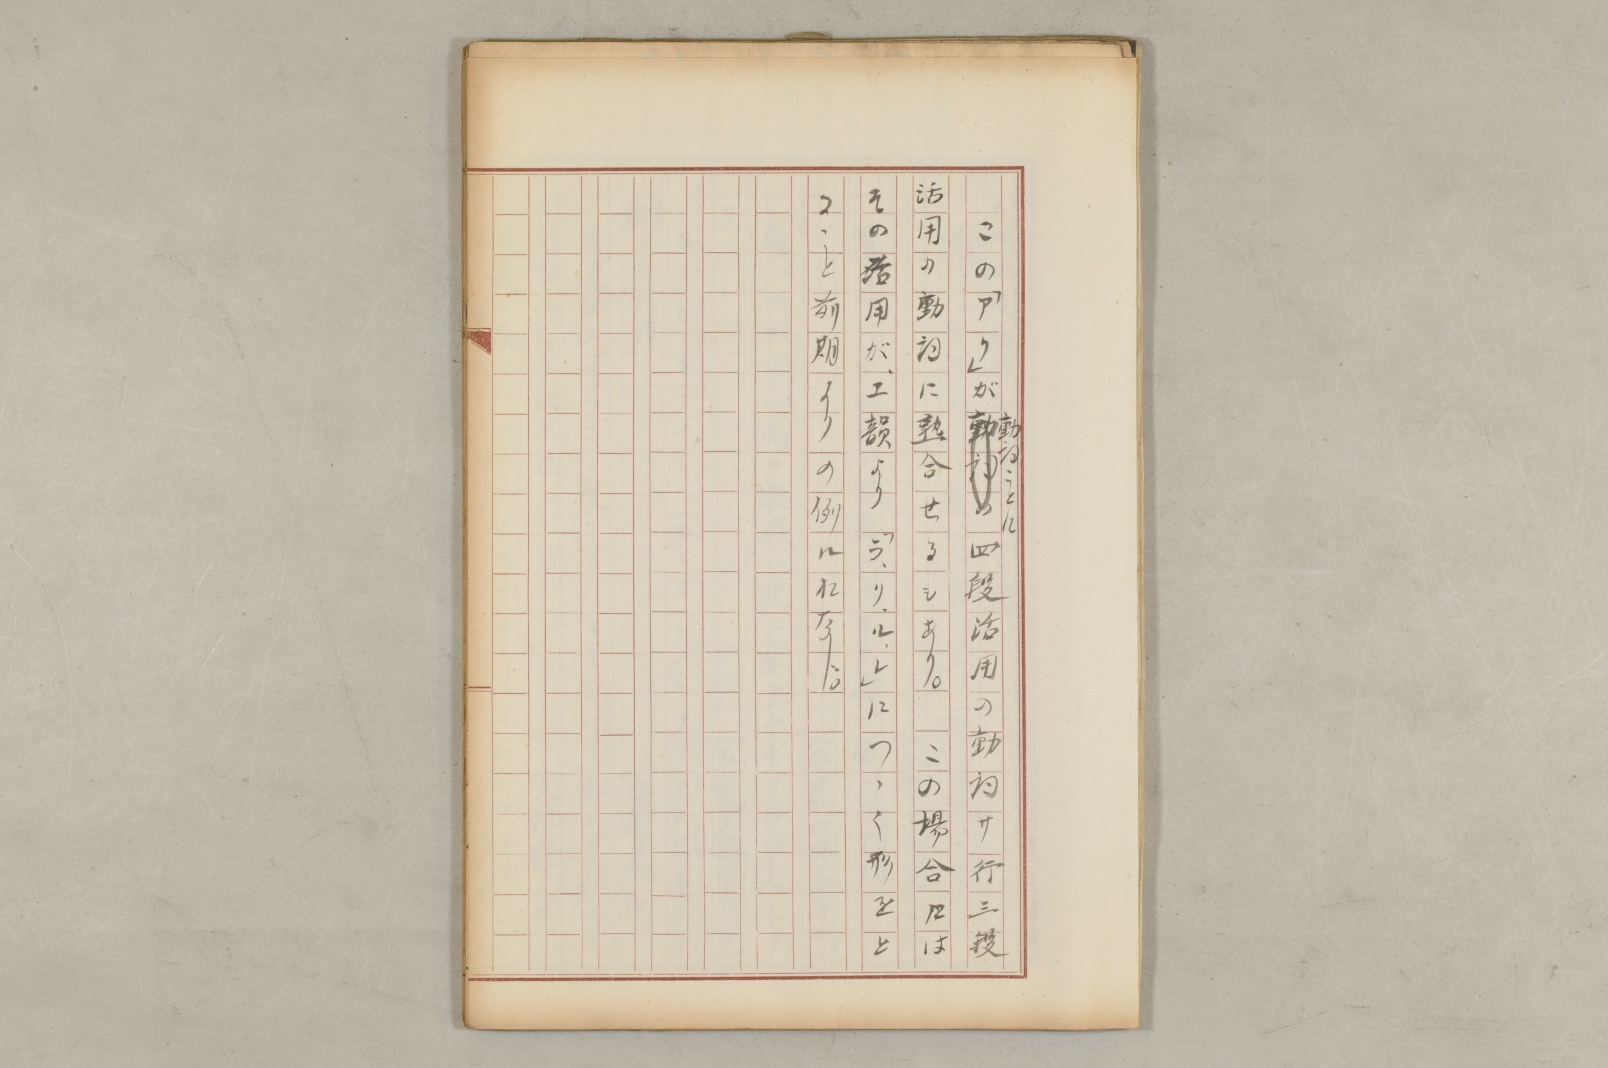 この「アリ」が動詞ことに四段活用の動詞サ行三段
活用の動詞に熟合せるもあり。この場合には
その活用が、エ韻より「ラ、リ、ル、レ」につゞく形をと
ること前期よりの例におなじ。